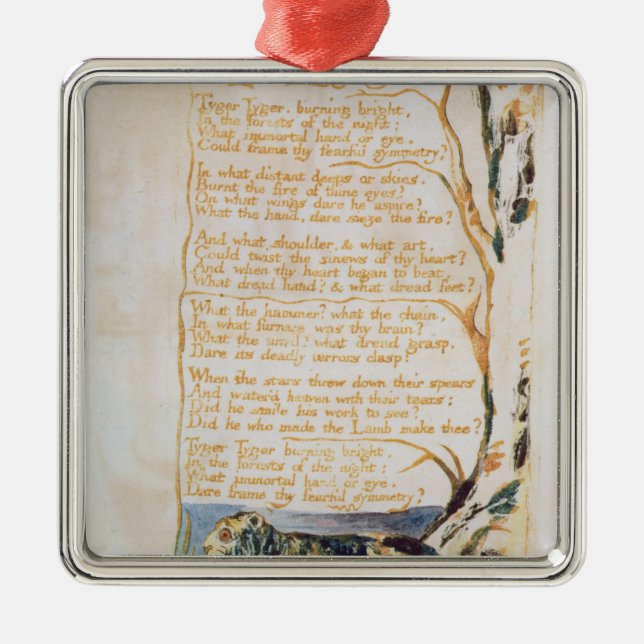 Tyger Tyger, burning bright,
In the forests of the night;
What immortal hand or eye,
Could frame thy fearful symmetry?
In what distant deeps or skies,
Burnt the fire of thine eyes?
On what wings dare he aspire?
What the hand, dare sieze the fire?
And what shoulder, & what art,
Could twist the sinews of thy heart?
And when thy heart began to beat,
What dread hand? & what dread feet?
What the hammer? what the chain,
In what furnace was thy brain?
What the anvil? what dread grasp,
Dare its deadly terrors clasp?
When the stars threw down their spears
And water'd heaven with their tears:
Did he smile his work to see?
Did he who made the Lamb make thee?
Tyger Tyger burning bright,
In the forests of the night:
What immortal hand or eye,
Dare frame thy fearful symmetry?